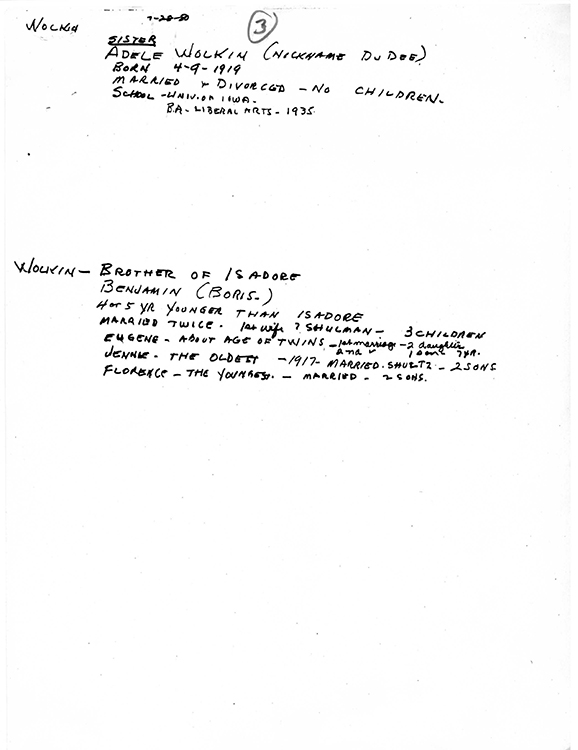 7-20-80
3
WOLKIN
SISTER
ADELE WOLKIN (NICKNAME DU DEE)
BORN 4-9-1919
MARRIED & DIVORCED - NO CHILDREN.
SCHOOL - UNIV. OF IOWA.
B.A. - LIBERAL ARTS - 1935
WOLKIN - BROTHER OF ISADORE
BENJAMIN (BORIS.)
4 or 5 YR YOUNGER THAN ISADORE
MARRIED TWICE. 1st wife ? SHULMAN - 3 CHILDREN
EUGENE - ABOUT AGE OF TWINS - 1st marriage - 2 daughters
2nd " 1 son 7 YR.
JENNIE - THE OLDEST - 1917 - MARRIED. SHULTZ - 2 SONS
FLORENCE - THE YOUNGEST. - MARRIED - 2 SONS.